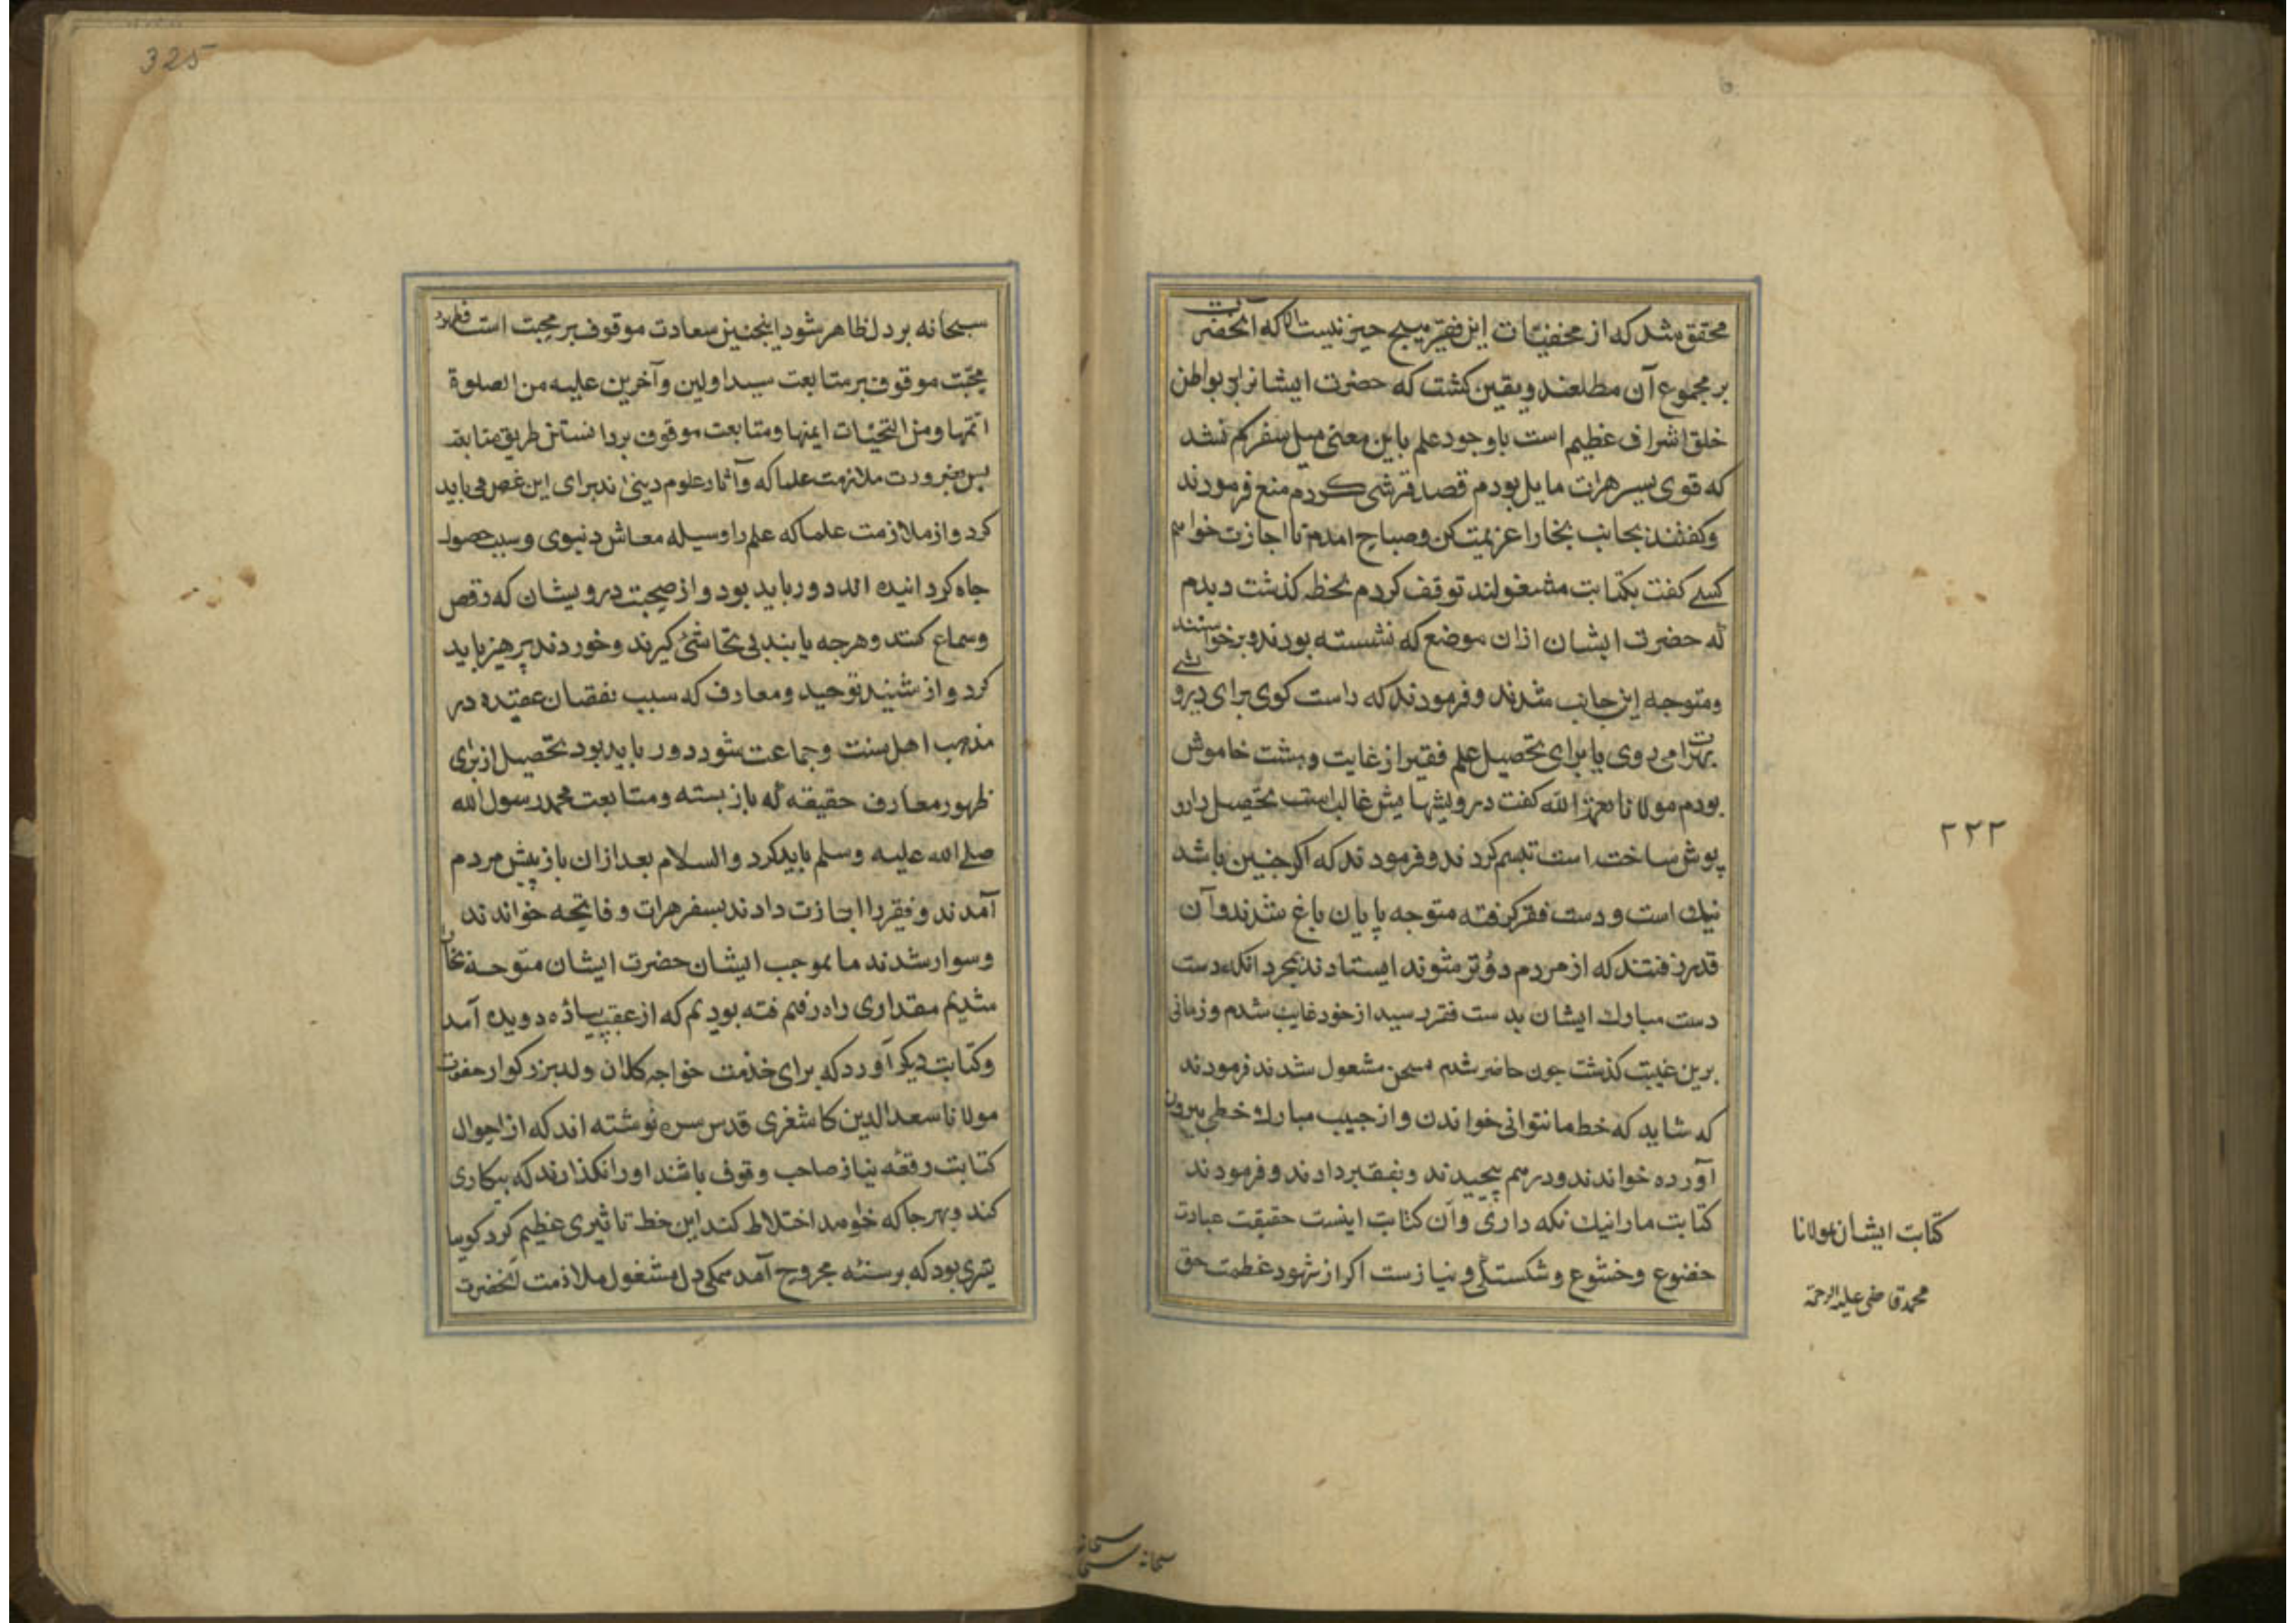 محقق شد که از مخفیّات این فقیر هیچ چیز نیست الا که آنحضرت
بر مجموع آن مطلعند و یقین کشت که حضرت ایشانرا بر بواطن
خلق اشراف عظیم است باوجود علم باین معنی میل سفرم کم نشد
که قوی بسیر هرات مایل بودم قصد قرشی کردم منع فرمودند
وکفتند بجانب بخارا عزیمت کن وصباح امدم تا اجازت خواهم
کسے کفت بکتابت مشغولند توقف کردم لحظه کذشت دیدم
که حضرت ایشان ازان موضع که نشسته بودند برخواستند
ومتوجه این جانب شدند وفرمودند که راست کوی برای درویشے
بهرات می روی یا برای تحصیل علم فقیر از غایت دهشت خاموش
بودم مولانا نعمة الله کفت درویشهایش غالب است تحصیل را رو
پوش ساخته است تبسم کردند وفرمودند که اکر چنین باشد
نیک است ودست فقیر کرفته متوجه پایان باغ شدند وآن
قدر رفتند که از مردم دورتر شوند ایستادند بمجرد انکه دست
دست مبارک ایشان بدست فقیر رسید از خود غایب شدم وزمانی
برین غیبت کذشت چون حاضر شدم بسخن مشغول شدند فرمودند
که شاید که خط ما نتوانی خواندن واز جیب مبارک خطی بیرون
آورده خواندند ودرهم پیچیدند وبفقیر دادند وفرمودند
کتابت ما را نیک نکه داری وآن کتابت اینست حقیقت عبادت
خضوع وخشوع وشکستکی ونیازست اکر از شهود عظمت حق
۲۲۳
کتابت ایشان بمولانا
محمد قاضی علیه الرحمة
سبحانه
325
سبحانه بر دل ظاهر شود اینچنین سعادت موقوف بر محبت است وظهور
محبّت موقوف بر متابعت سید اولین وآخرین علیه من الصلوة
اتمّها ومن التحیّات ایمنها ومتابعت موقوف بر دانستن طریق متابعت
پس بضرورت ملازمت علما که وآثار علوم دینی اند برای این غرض می باید
کرد واز ملازمت علما که علم را وسیله معاش دنیوی وسبب حصول
جاه کردانیده اند دور باید بود واز صحبت درویشان که رقص
وسماع کنند وهرچه یابند بی تحاشی کیرند وخورند پرهیز باید
کرد واز شنیدن توحید ومعارف که سبب نقصان عقیده در
مذهب اهل سنت وجماعت شود دور باید بود تحصیل از برای
ظهور معارف حقیقه که باز بسته ومتابعت محمد رسول الله
صلے الله علیه وسلم باید کرد والسلام بعد ازان باز پیش مردم
آمدند وفقیر را اجازت دادند بسفر هرات وفاتحه خواندند
وسوار شدند ما بموجب ایشان حضرت ایشان متوجه بخارا
شدیم مقداری راه رفتم فته بودیم که از عقب پیاده دویده آمد
وکتابت دیکر آورد که برای خدمت خواجه کلان ولد بزرکوار حضرت
مولانا سعد الدین کاشغری قدس سره نوشته اند که از احوال
کتابت رقعه نیاز صاحب وقوف باشند اورا نکذارند که بیکاری
کند وبهر جا که خواهد اختلاط کند این خط تاثیری عظیم کرد کویا
تیری بود که بر سینه مجروح آمد همکی دل مشغول ملازمت آنحضرت